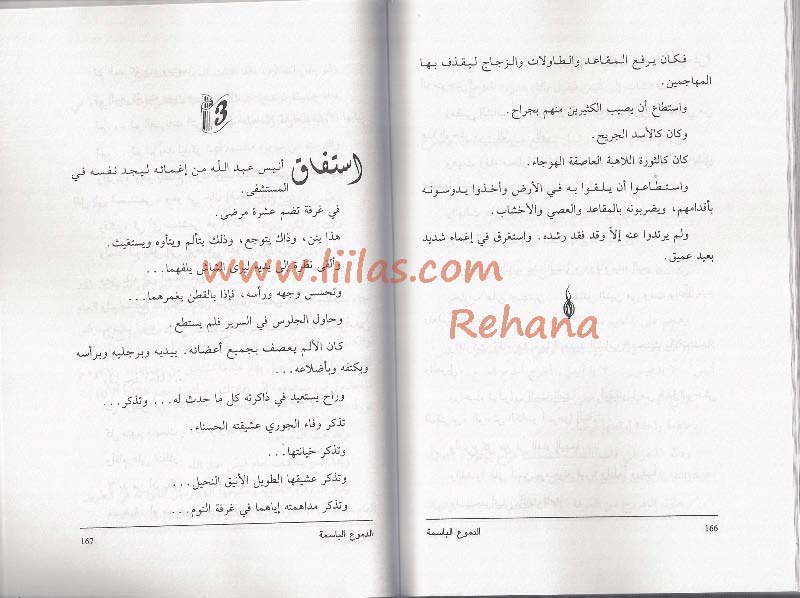 فكان يرفع المقاعد والطاولات والزجاج ليقذف بها
المهاجمين.
واستطاع أن يصيب الكثيرين منهم بجراح.
وكان كالأسد الجريح.
كان كالثورة اللاهبة العاصفة الهوجاء.
واستطاعوا أن يلقوا به في الأرض وأخذوا يدوسونه
بأقدامهم، ويضربونه بالمقاعد والعصي والأخشاب.
ولم يرتدوا عنه إلاّ وقد فقد رشده. واستغرق في إغماء شديد
بعيد عميق.
الدموع الباسمة
166
3
استفاق أنيس عبد الله من إغمائه ليجد نفسه في
المستشفى.
في غرفة تضم عشرة مرضى.
هذا يئن، وذاك يتوجع، وذلك يتألم ويتأوه ويستغيث.
وألقى نظرة إلى يديه ليرى الشاش يلفهما...
وتحسس وجهه ورأسه، فإذا بالقطن يغمرهما...
وحاول الجلوس في السرير فلم يستطع.
كان الألم يعصف بجميع أعضائه. بيديه وبرجليه وبرأسه
وبكتفه وبأضلاعه...
وراح يستعيد في ذاكرته كل ما حدث له... وتذكر...
تذكر وفاء الجوري عشيقته الحسناء.
وتذكر خيانتها...
وتذكر عشيقها الطويل الأنيق النحيل...
وتذكر مداهمته إياهما في غرفة النوم...
الدموع الباسمة
167
www.liilas.com
Rehana